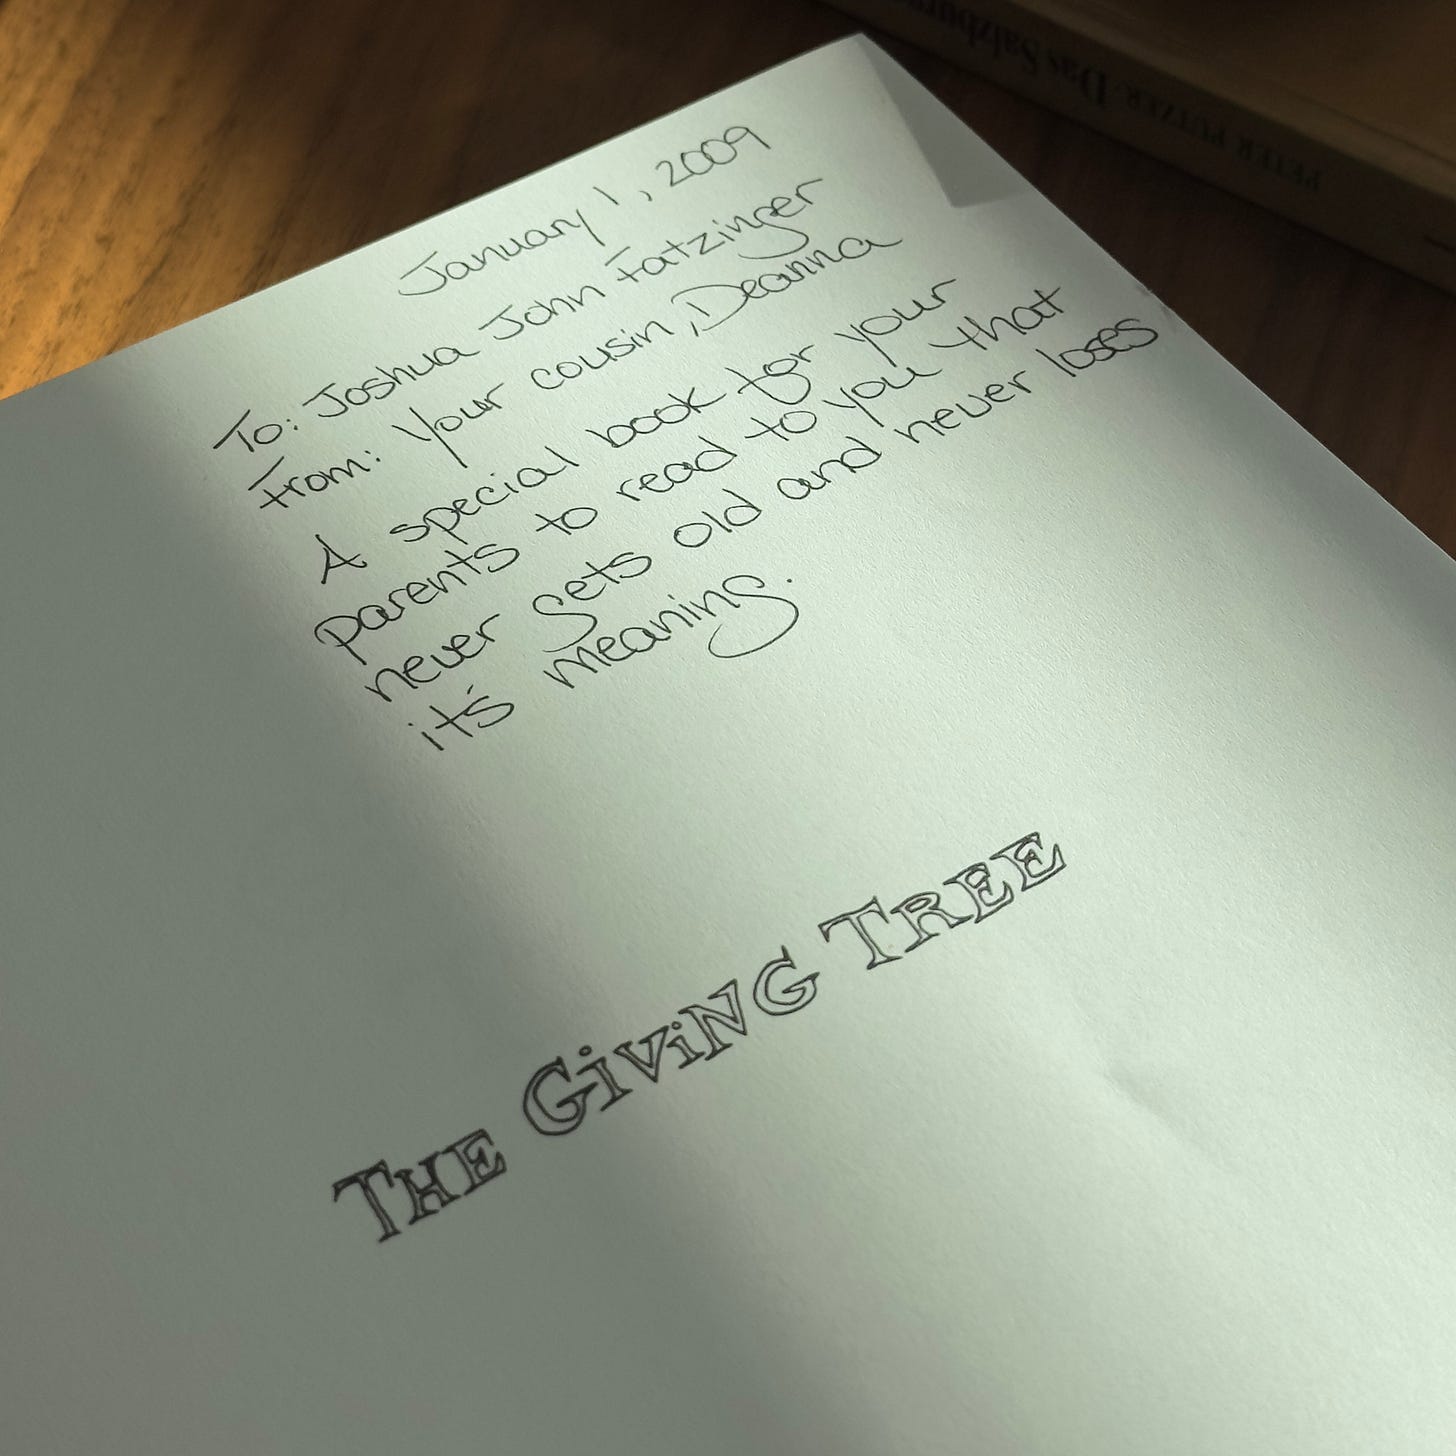 January 1, 2009
To: Joshua John Fatzinger
From: Your cousin, Deanna
A special book for your
parents to read to you that
never gets old and never loses
it's meaning.
THE GiViNG TREE
PETER PUTZER · Das Salzburg